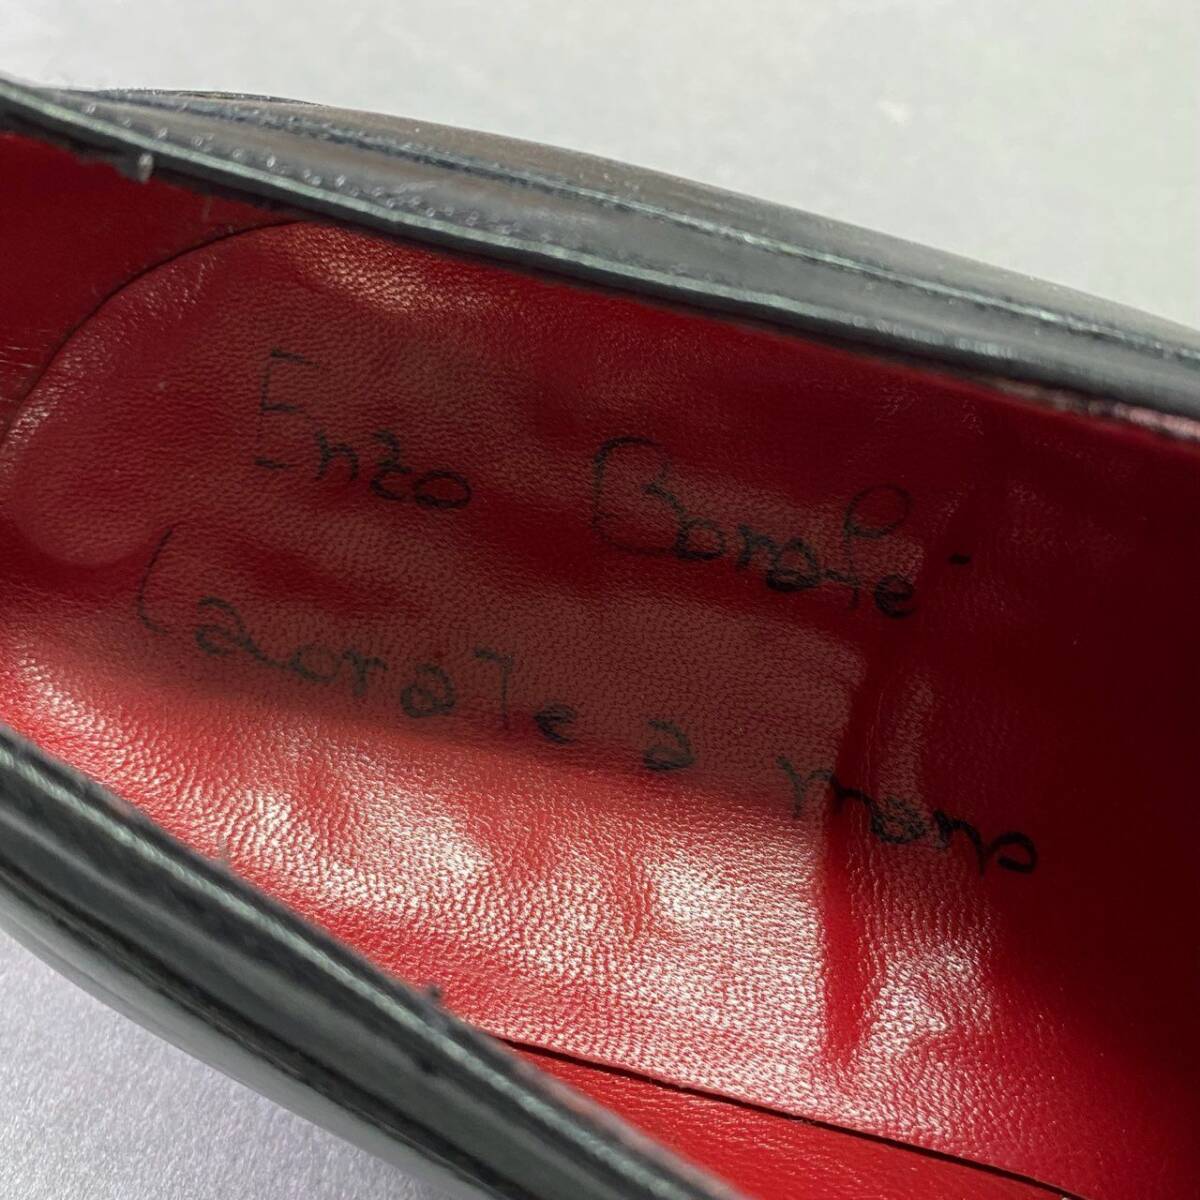 Enzo Bonafè
Laorate a mano